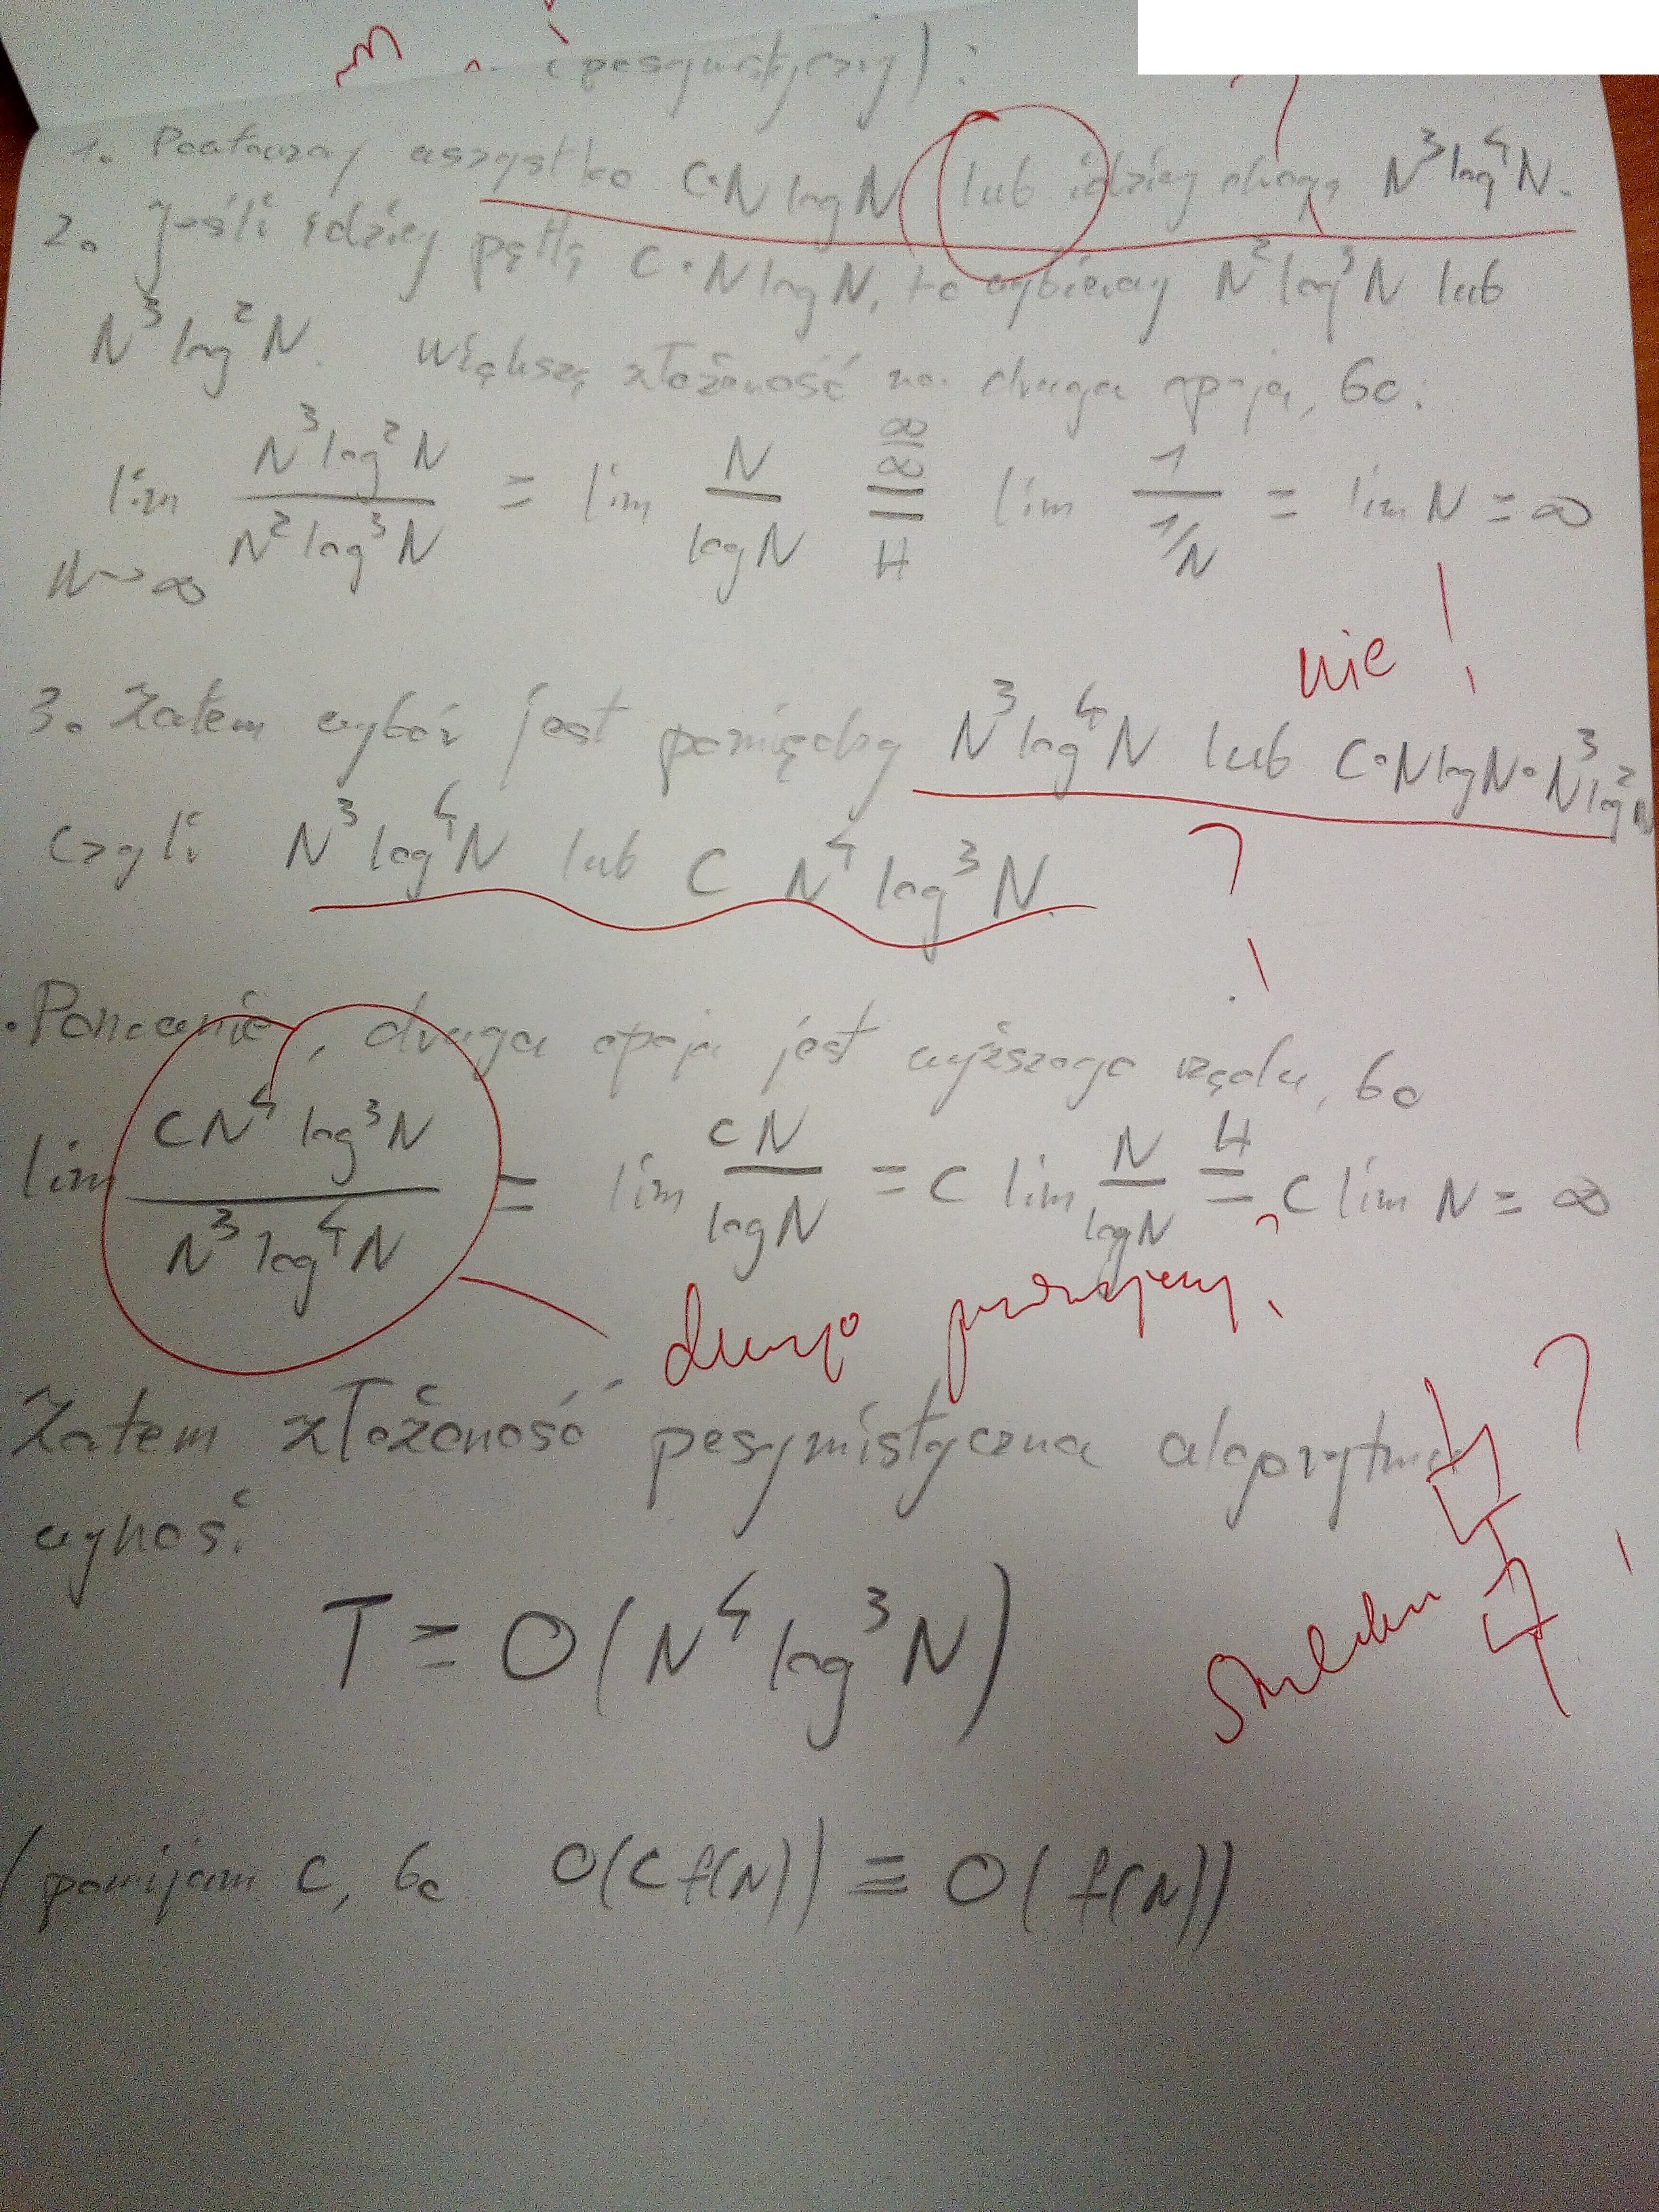 (pesymistyczny):
1. Powtarzamy wszystko C·N log N lub idziemy drogą N³ log⁴ N.
2. Jeśli idziemy pętlą C·N log N, to wybieramy N² log³ N lub
N³ log² N. Większą złożoność ma druga opcja, bo:
lim N→∞ N³ log² N / N² log³ N = lim N / log N = ∞/∞ H lim 1 / 1/N = lim N = ∞
nie!
3. Zatem wybór jest pomiędzy N³ log⁴ N lub C·N log N·N³ log² N
czyli N³ log⁴ N lub C N⁴ log³ N.
?
!
. Ponownie, druga opcja jest wyższego rzędu, bo
lim C N⁴ log³ N / N³ log⁴ N = lim C N / log N = C lim N / log N =H C lim N = ∞
Zatem złożoność pesymistyczna algorytmu
wynosi
?
!
T = O(N⁴ log³ N)
(pomijam C, bo O(C f(N)) ≡ O(f(N))